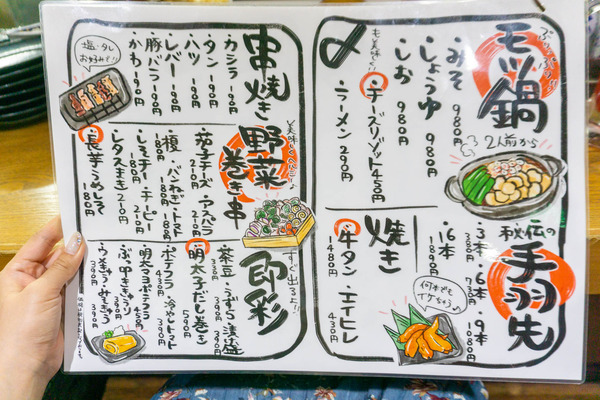 ぷりっぷり!!
モツ鍋
2人前から
・みそ 980円
・しょうゆ 980円
・しお 980円
〆
も美味しい!
・チーズリゾット 450円
・ラーメン 290円
秘伝の
手羽先
・3本
・6本
・9本 1080円
・16本 1890円
何本でもイケちゃう
焼き
・牛タン 1480円
・エイヒレ 430円
串焼き
塩・タレお好みで!!
・カシラ 190円
・タン 190円
・ハツ 190円
・レバー 190円
・豚バラ 190円
・かわ 190円
美味しくのいり
野菜巻き串
・茄子チーズ 210円
・アスパラ 210円
・榎 180円
・パンねぎ 180円
・トマト 180円
・しそチー 210円
・チーピー 210円
・レタスまき 210円
・長芋うめしそ 180円
すぐ出るよ!!
即彩
・茶豆 330円
・うずら 390円
・漬盛 390円
・明太子だし巻き 590円
・ポテフラ 430円
・冷やしトマト 390円
・明太マヨポテフラ 430円
・ぶっ叩ききゅうり 390円
・うめきゅうみそきゅう 390円